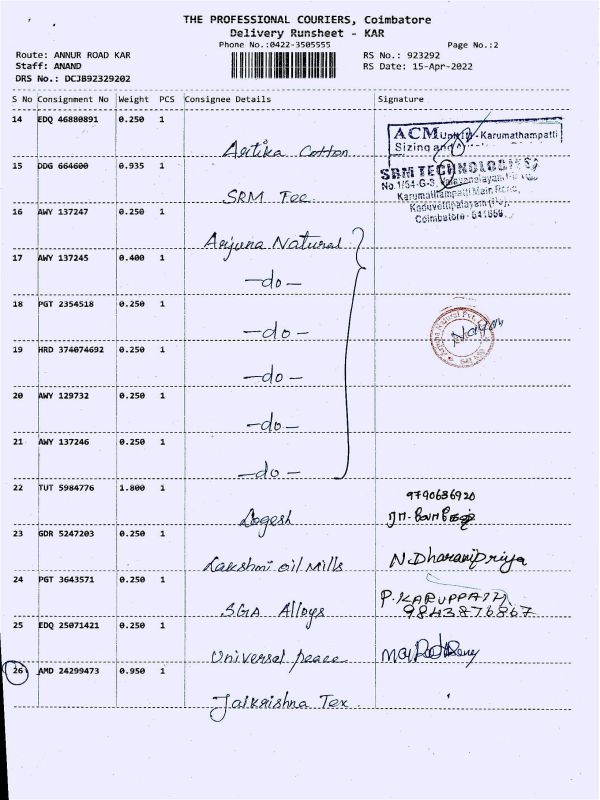 THE PROFESSIONAL COURIERS, Coimbatore
Delivery Runsheet - KAR
Phone No.:0422-3505555
Page No.:2
Route: ANNUR ROAD KAR
RS No.: 923292
Staff: ANAND
RS Date: 15-Apr-2022
DRS No.: DCJB92329202
S No Consignment No Weight PCS Consignee Details Signature
14 EDQ 46880891 0.250 1
ACM Karumathampatti
Sizing and
Aatika Cotton
15 DDG 664600 0.935 1
SRM TECHNOLOGIES
No.1/54-G-3,
Karumathampatti Main Road,
Kaduvettipalayam (Po),
Coimbatore - 641659.
SRM Tec
16 AWY 137247 0.250 1
Arjuna Natural
17 AWY 137245 0.400 1
-do-
18 PGT 2354518 0.250 1
-do-
19 HRD 374074692 0.250 1
-do-
20 AWY 129732 0.250 1
-do-
21 AWY 137246 0.250 1
-do-
22 TUT 5984776 1.800 1
9790636920
Logesh
23 GDR 5247203 0.250 1
Lakshmi oil Mills N.Dharanipriya
24 PGT 3643571 0.250 1
P.KARUPPASAMY
SGA Alloys 9843876867
25 EDQ 25071421 0.250 1
Universal peace
26 AMD 24299473 0.950 1
Jaikrishna Tex